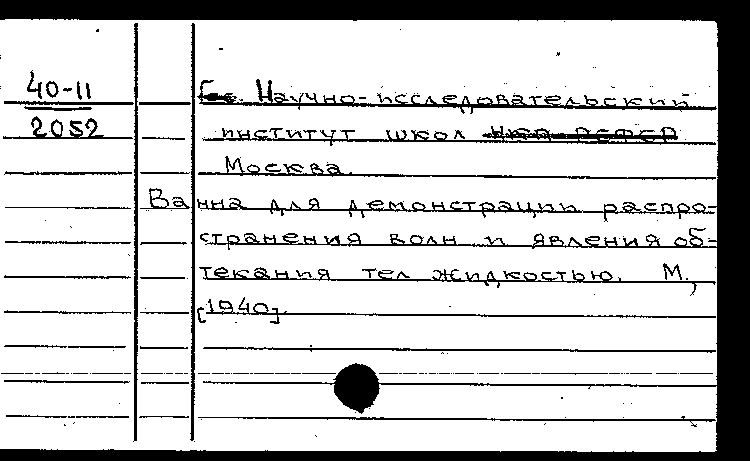 40-11
2052
Гос. Научно-исследовательский
институт школ НКП РСФСР
Москва.
Ванна для демонстрации распро-
странения волн и явления об-
текания тел жидкостью. М.,
[1940].